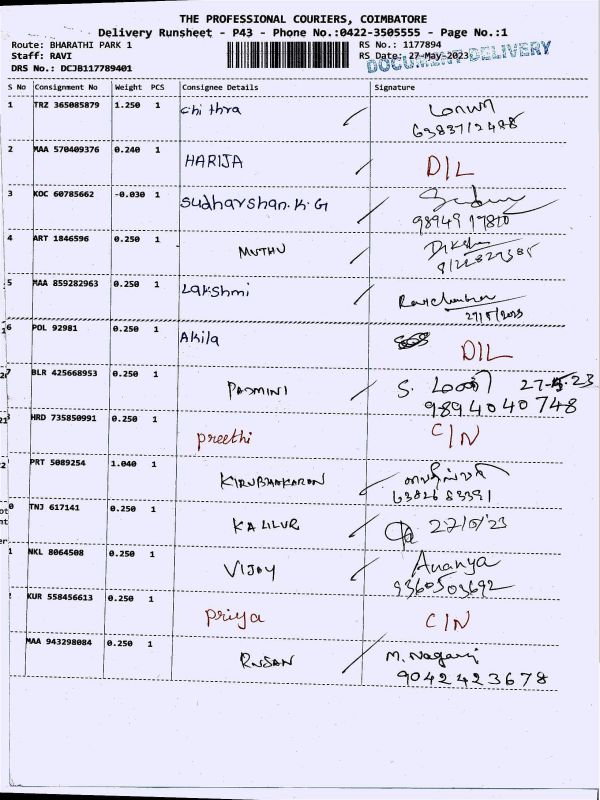 THE PROFESSIONAL COURIERS, COIMBATORE
Delivery Runsheet - P43 - Phone No.:0422-3505555 - Page No.:1
Route: BHARATHI PARK 1 RS No.: 1177894
Staff: RAVI RS Date: 27-May-2023
DOCUMENT DELIVERY
DRS No.: DCJB117789401
S No Consignment No Weight PCS Consignee Details Signature
1 TRZ 365085879 1.250 1 chithra
2 MAA 570409376 0.240 1 HARIJA D/L
3 KOC 60785662 -0.030 1 Sudharshan.K.G
4 ART 1846596 0.250 1 MUTHU
5 MAA 859282963 0.250 1 Lakshmi Ravichandran
27/5/2023
6 POL 92981 0.250 1 Akila D/L
7 BLR 425668953 0.250 1 PADMINI S. 27-5-23
9894040748
HRD 735850991 0.250 1 preethi C/N
PRT 5089254 1.040 1 KIRUBHAKARAN
6382683391
TNJ 617141 0.250 1 KALILUR 27/5/23
NKL 8064508 0.250 1 VIJOY Ananya
9360503692
KUR 558456613 0.250 1 priya C/N
MAA 943298084 0.250 1 RUSAN M. Nagaraj
9042423678